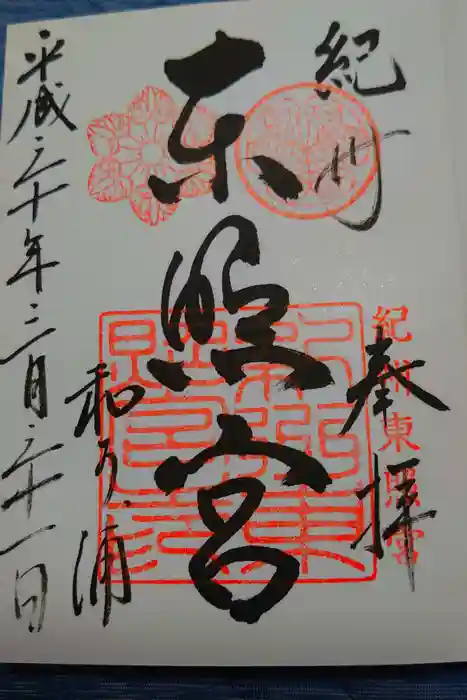 紀州
奉拝
紀州東照宮
東照宮
和歌浦
平成三十年三月三十一日